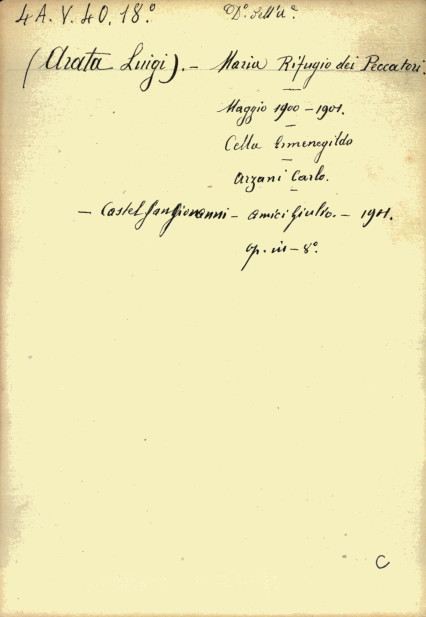 4A.V.40.18.°
D.° Dell'A.°
(Arata Luigi). — Maria Rifugio dei Peccatori.
Maggio 1900 – 1901.
Cella Ermenegildo
Arzani Carlo.
— Castel San Giovanni — Amici Giulio. — 1901.
op. in – 8.°
C